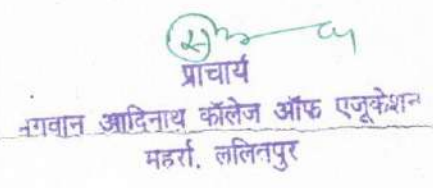 प्राचार्य
भगवान आदिनाथ कॉलेज ऑफ एजूकेशन
महर्रा. ललितपुर